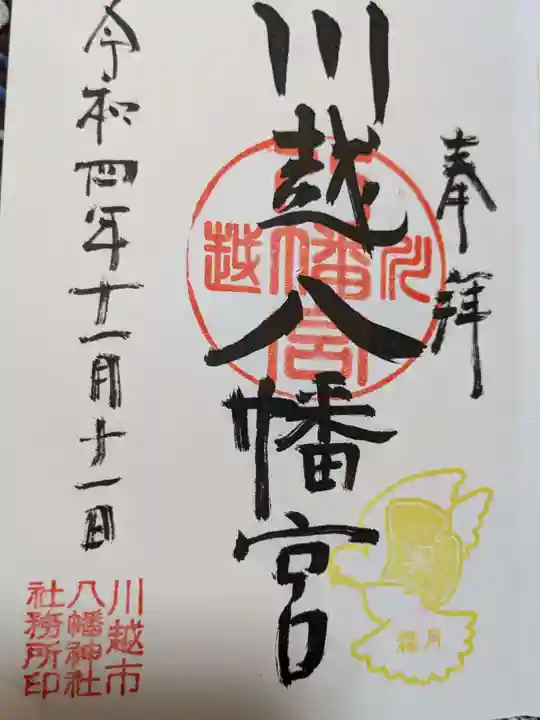 奉拝
川越八幡宮
令和四年十一月十一日
川越
幡宮
川越市
八幡神社
社務所印
霜月